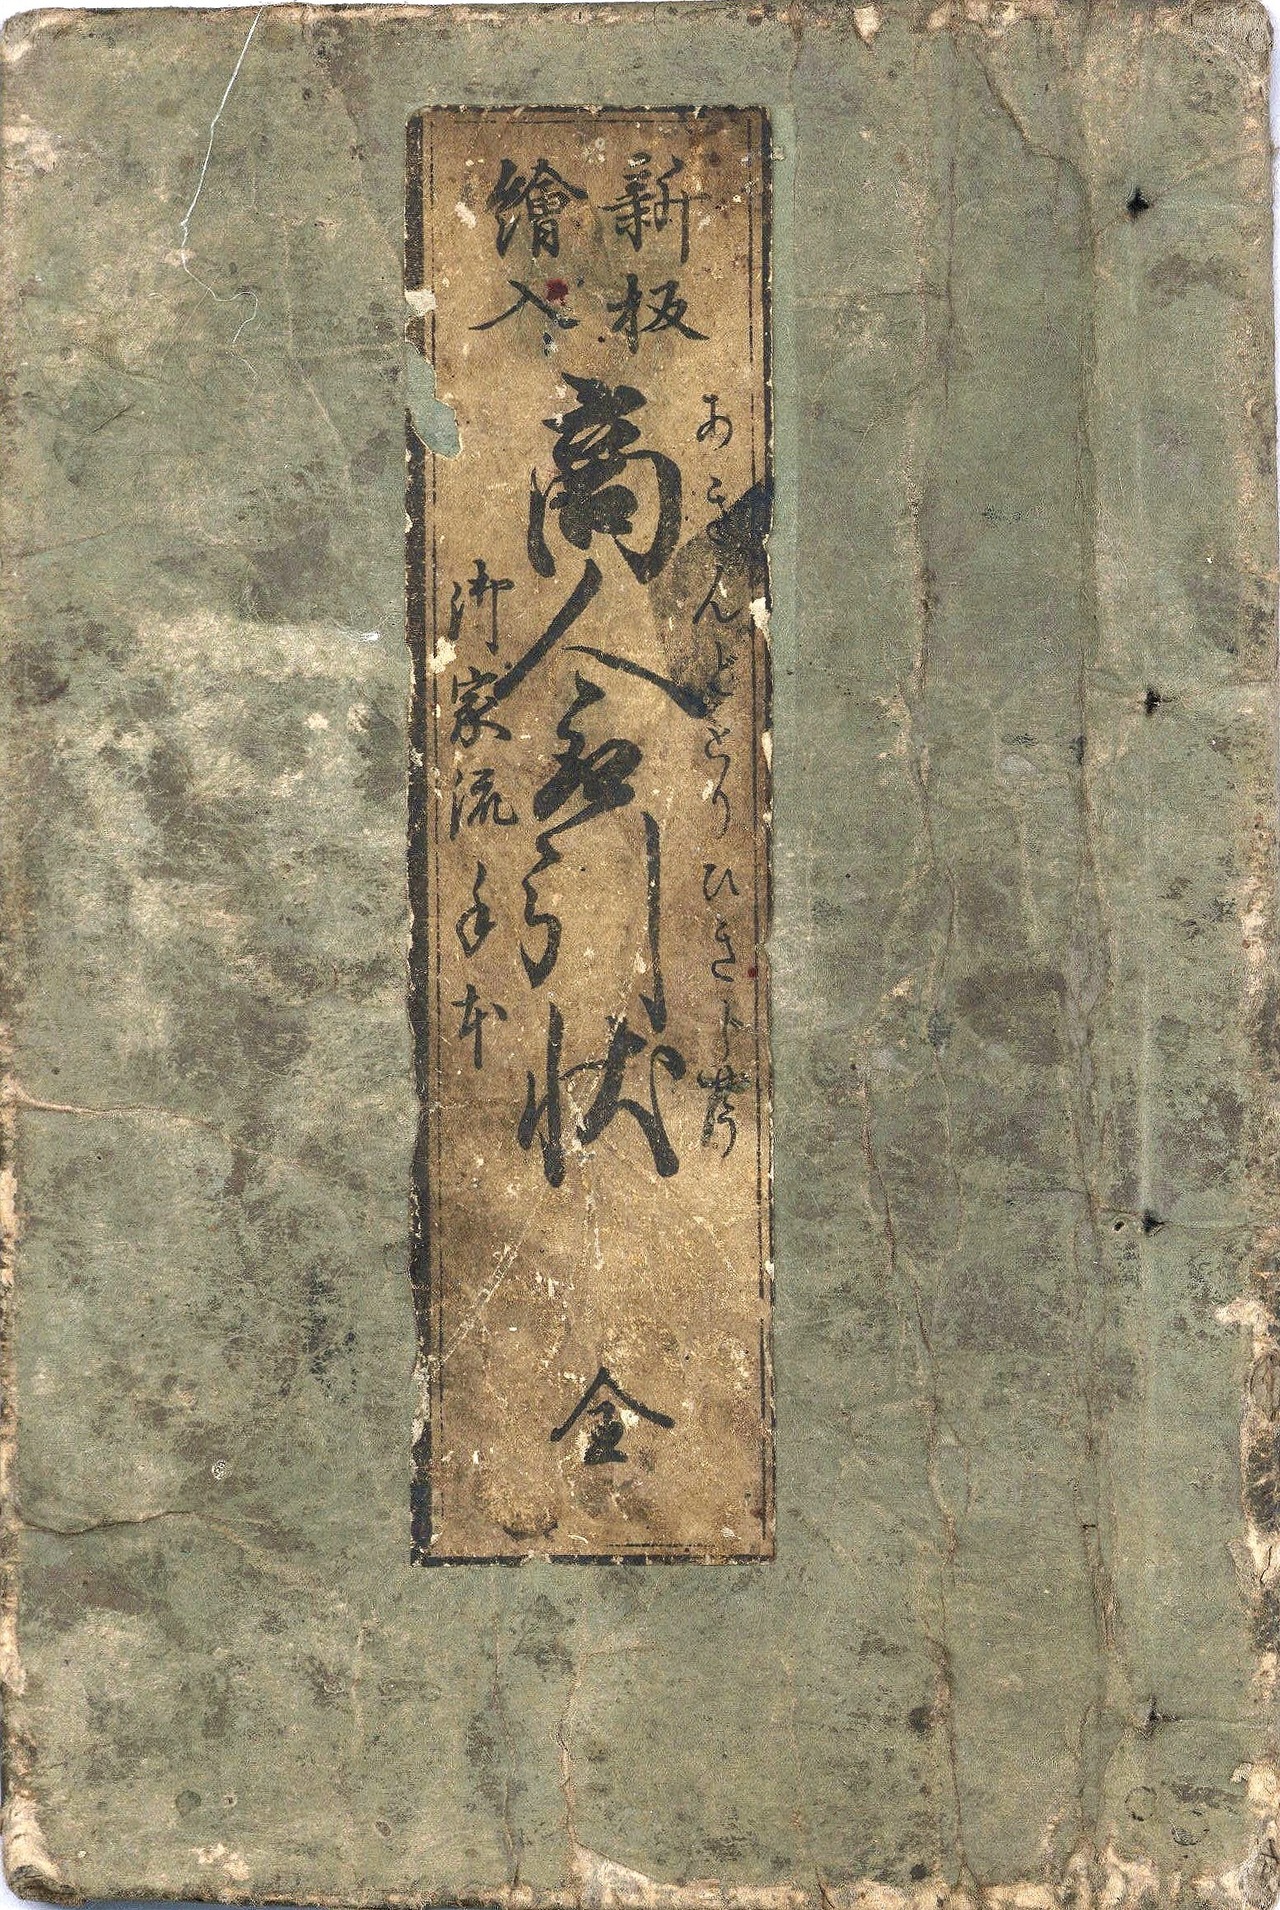 新板
繪入
あきんどとりひきじやう
商人取引状
御家流手本
全